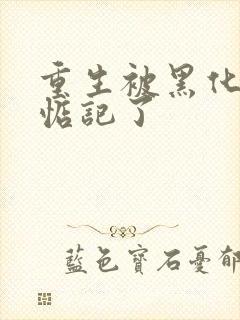 重生被黑化
惦記了
藍色寶石憂郁